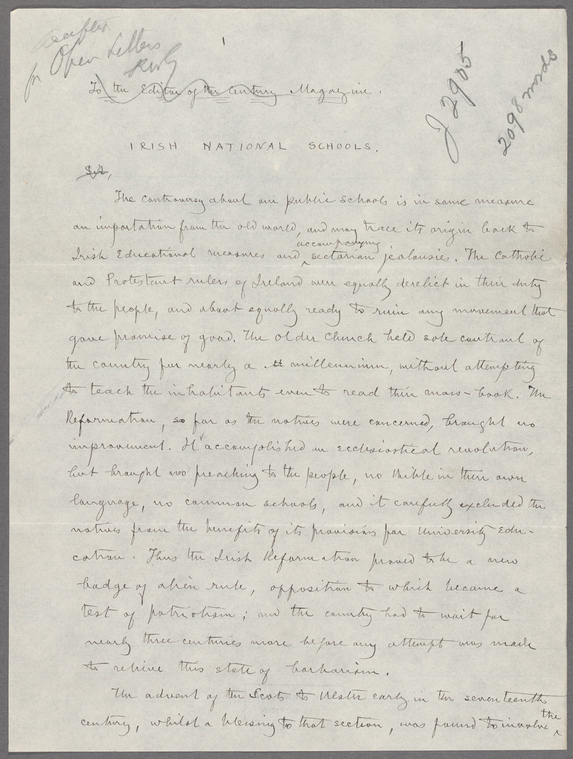 Accepted
for Open Letters
1
To the Editor of the Century Magazine.
J 2905
2098 words
IRISH NATIONAL SCHOOLS.
Sir,
The controversy about our public schools is in some measure
an importation from the old world, and may trace its origin back to
accompanying
Irish Educational measures and sectarian jealousie. The Catholic
and Protestant rulers of Ireland were equally derelict in their duty
to the people, and about equally ready to ruin any movement that
gave promise of good. The older Church held sole controul of
the country for nearly a millennium, without attempting
to teach the inhabitants even to read their mass-book. The
Reformation, so far as the natives were concerned, brought no
improvement. It accomplished an ecclesiastical revolution,
but brought no preaching to the people, no Bible in their own
language, no common schools, and it carefully excluded the
natives from the benefits of its provisions for University Edu-
cation. Thus the Irish Reformation proved to be a new
badge of alien rule, opposition to which became a
test of patriotism; and the country had to wait for
nearly three centuries more before any attempt was made
to relieve this state of barbarism.
The advent of the Scots to Ulster early in the seventeenth
century, whilst a blessing to that section, was found to involve the